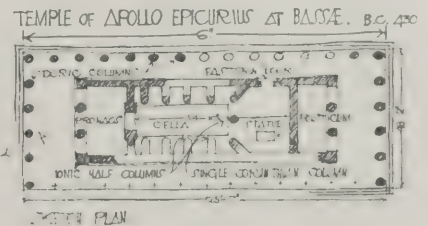 TEMPLE OF APOLLO EPICURIUS AT BASSÆ. B.C. 430
6"
DORIC COLUMN EASTERN DOOR
PRONAOS CELLA STATUE
IONIC HALF COLUMNS SINGLE CORINTHIAN COLUMN
PLAN